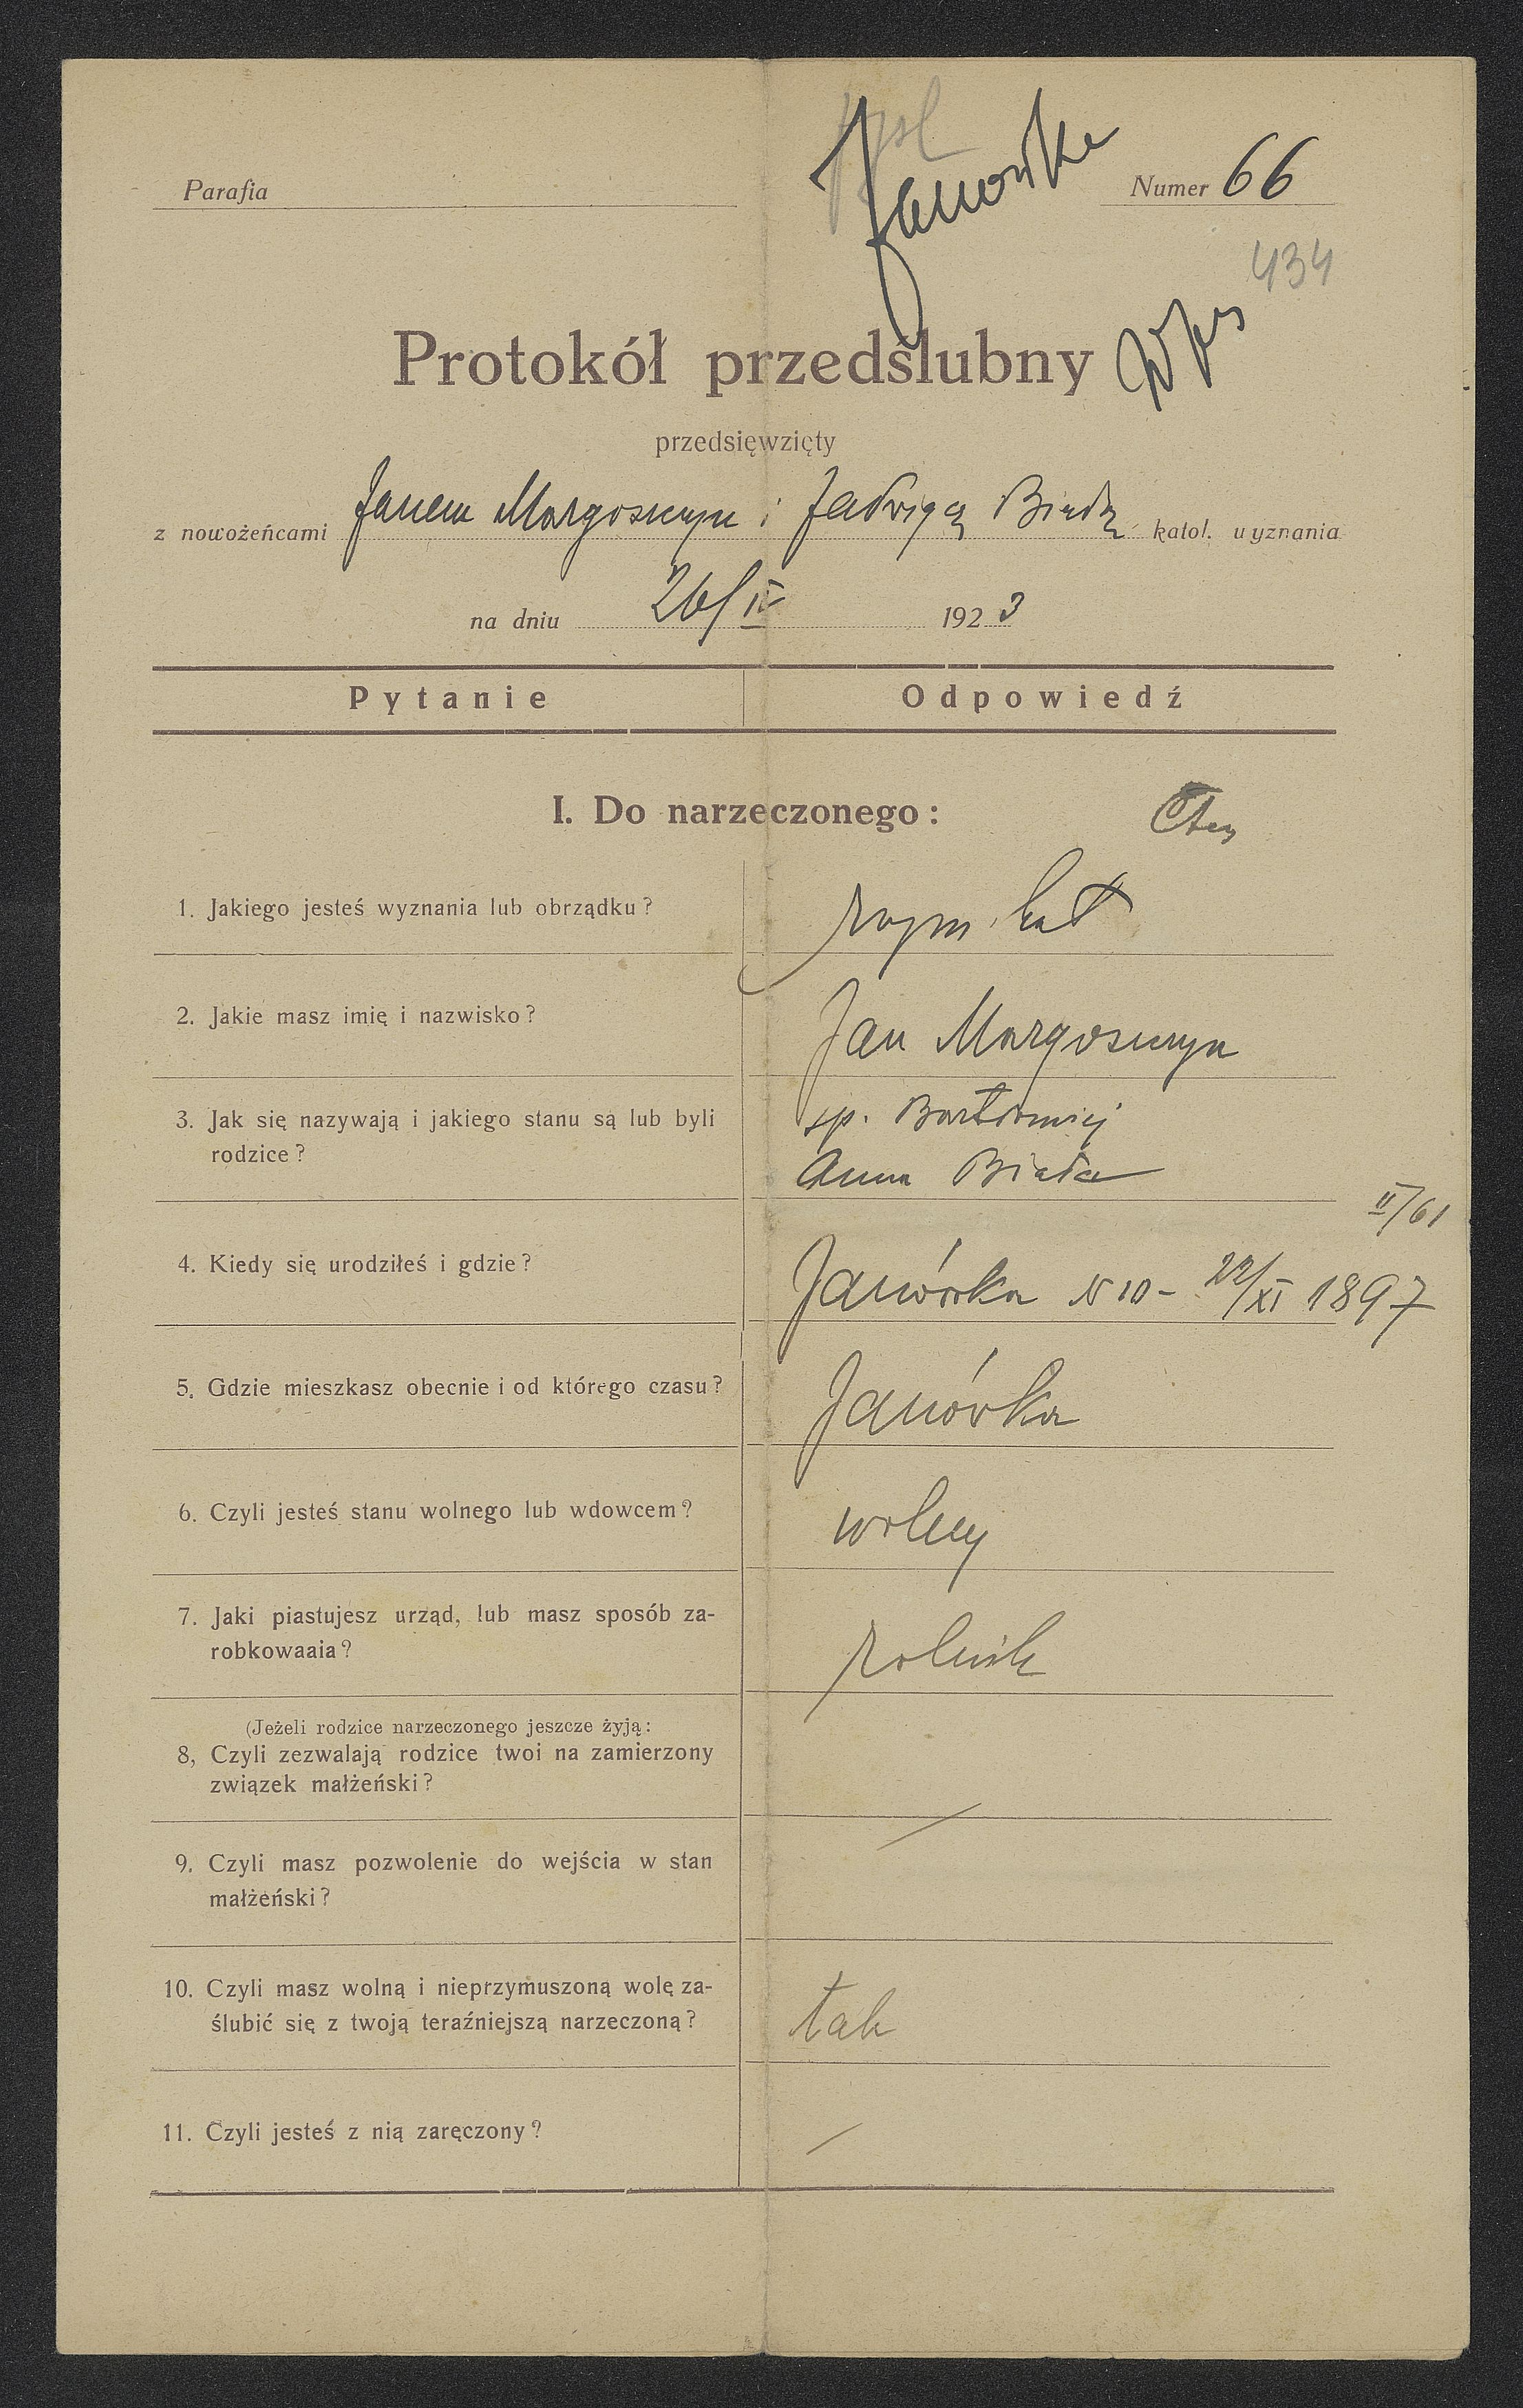 Janówka
Parafia
Numer 66
434
Protokół przedślubny
przedsięwzięty
z nowożeńcami Janem Margoszczyn i Jadwigą Biedą katol. uyznania
na dniu 26/IV 1923
Pytanie Odpowiedź
I. Do narzeczonego:
1. Jakiego jesteś wyznania lub obrządku? rzym. kat
2. Jakie masz imię i nazwisko? Jan Margoszczyn
3. Jak się nazywają i jakiego stanu są lub byli sp. Bartłomiej
rodzice? Anna Biała
II/61
4. Kiedy się urodziłeś i gdzie? Janówka N 10 - 22/XI 1897
5. Gdzie mieszkasz obecnie i od którego czasu? Janówka
6. Czyli jesteś stanu wolnego lub wdowcem? wolny
7. Jaki piastujesz urząd, lub masz sposób za-
robkowaaia? rolnik
(Jeżeli rodzice narzeczonego jeszcze żyją:
8, Czyli zezwalają rodzice twoi na zamierzony
związek małżeński?
9. Czyli masz pozwolenie do wejścia w stan
małżeński?
10. Czyli masz wolną i nieprzymuszoną wolę za-
ślubić się z twoją teraźniejszą narzeczoną? tak
11. Czyli jesteś z nią zaręczony?